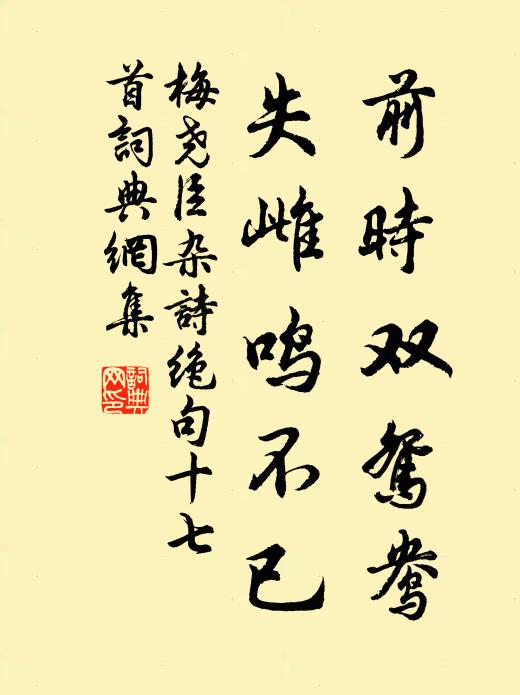 前時双鴛鴦
失雌鸣不已
梅尧臣杂詩绝句十七
首詞典網集
詞典
网印